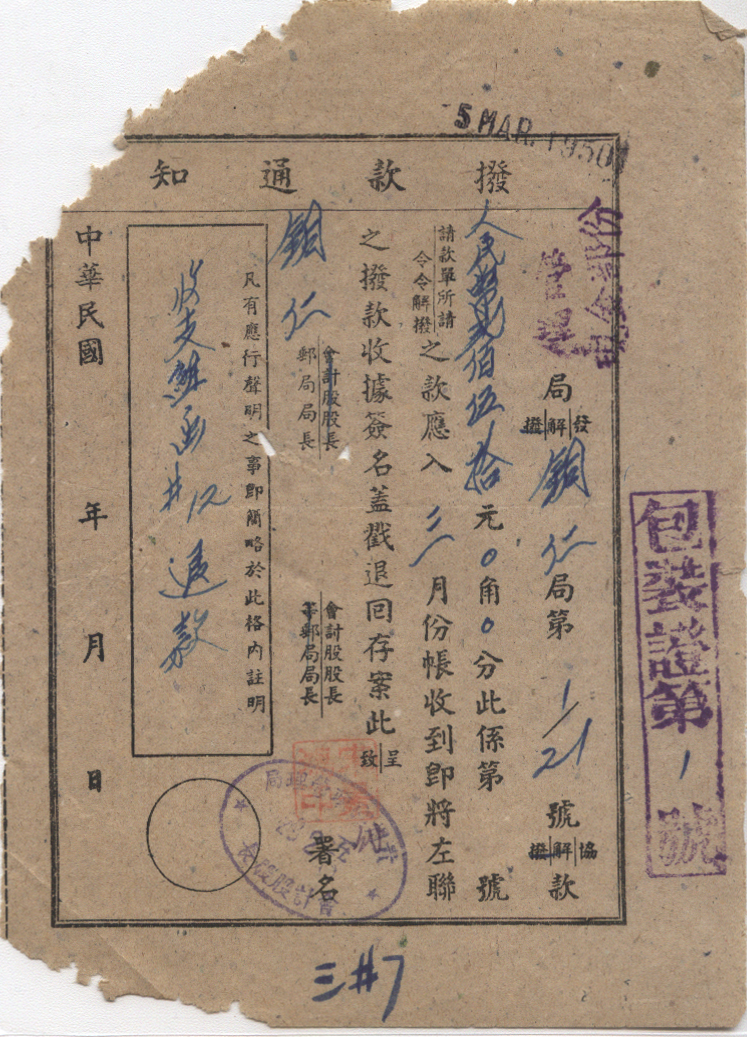 5 MAR. 1950
撥款通知
管理
局發解撥銅仁局第1/21號協解撥款
人民幣貳佰伍拾元0角0分此係第 號
請款單所請
令令解撥
之款應入三月份帳收到即將左聯
之撥款收據簽名蓋戳退回存案此呈致
銅仁
會計股股長
郵局局長
會計股股長
等郵局局長
署名
凡有應行聲明之事即簡略於此格內註明
收支 函#12退款
中華民國 年 月 日
包裝證第1號
會計股股長
三#7